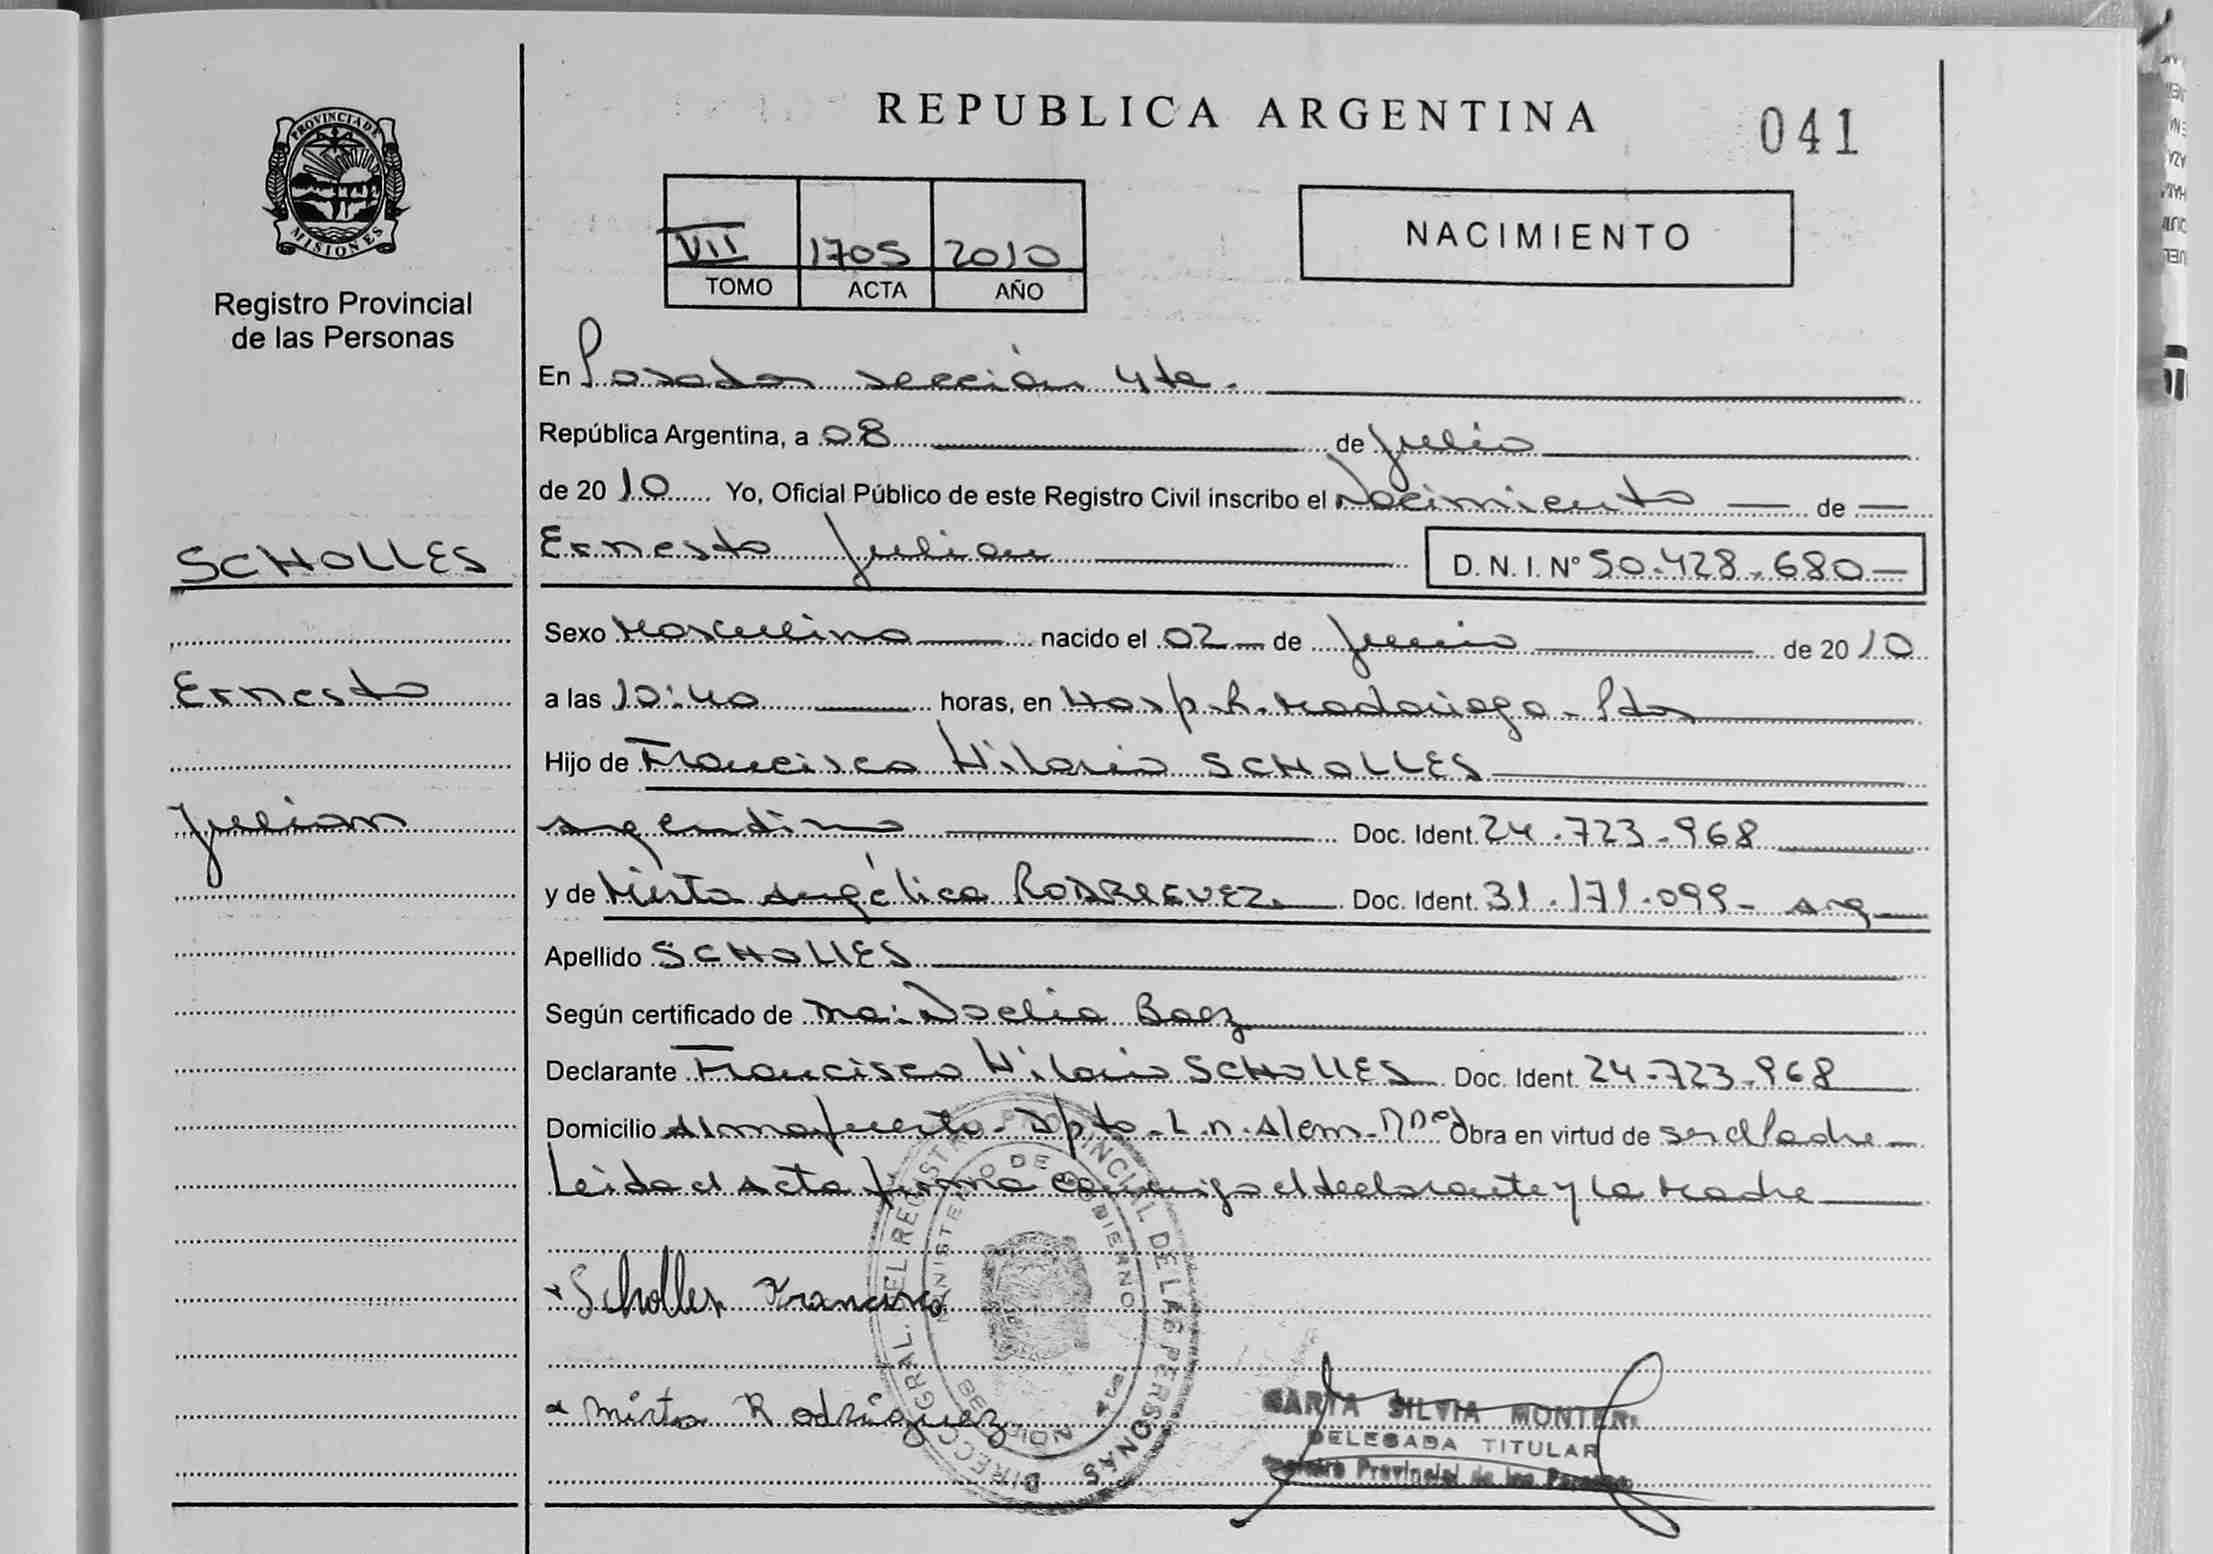 REPUBLICA ARGENTINA
041
PROVINCIA DE
MISIONES
Registro Provincial
de las Personas
VII 1705 2010
TOMO ACTA AÑO
NACIMIENTO
En Posadas sección 4ta.
República Argentina, a 08 de Julio
de 2010 Yo, Oficial Público de este Registro Civil inscribo el Nacimiento de
SCHOLLES
Ernesto Julian
D. N. I. N° 50.428.680
Sexo Masculino nacido el 02 de Junio de 2010
Ernesto
a las 10:40 horas, en Hosp. R. Madariaga - Pdas
Hijo de Francisco Hilario SCHOLLES
Julian
argentino Doc. Ident. 24.723.968
y de Mirta Angélica RODRIGUEZ. Doc. Ident. 31.171.099 - arg
Apellido SCHOLLES
Según certificado de Ma. Noelia Baez
Declarante Francisco Hilario SCHOLLES Doc. Ident. 24.723.968
Domicilio Almafuerte - Dpto. L.n. Alem - Mnes Obra en virtud de ser el Padre
Leida el Acta firma conmigo el declarante y la Madre
Scholles Francisco
Mirta Rodriguez
DIRECC. GRAL. DEL REGISTRO PROVINCIAL DE LAS PERSONAS
MINISTERIO DE GOBIERNO
SILVIA MONTER
DELEGADA TITULAR
Registro Provincial de las Personas